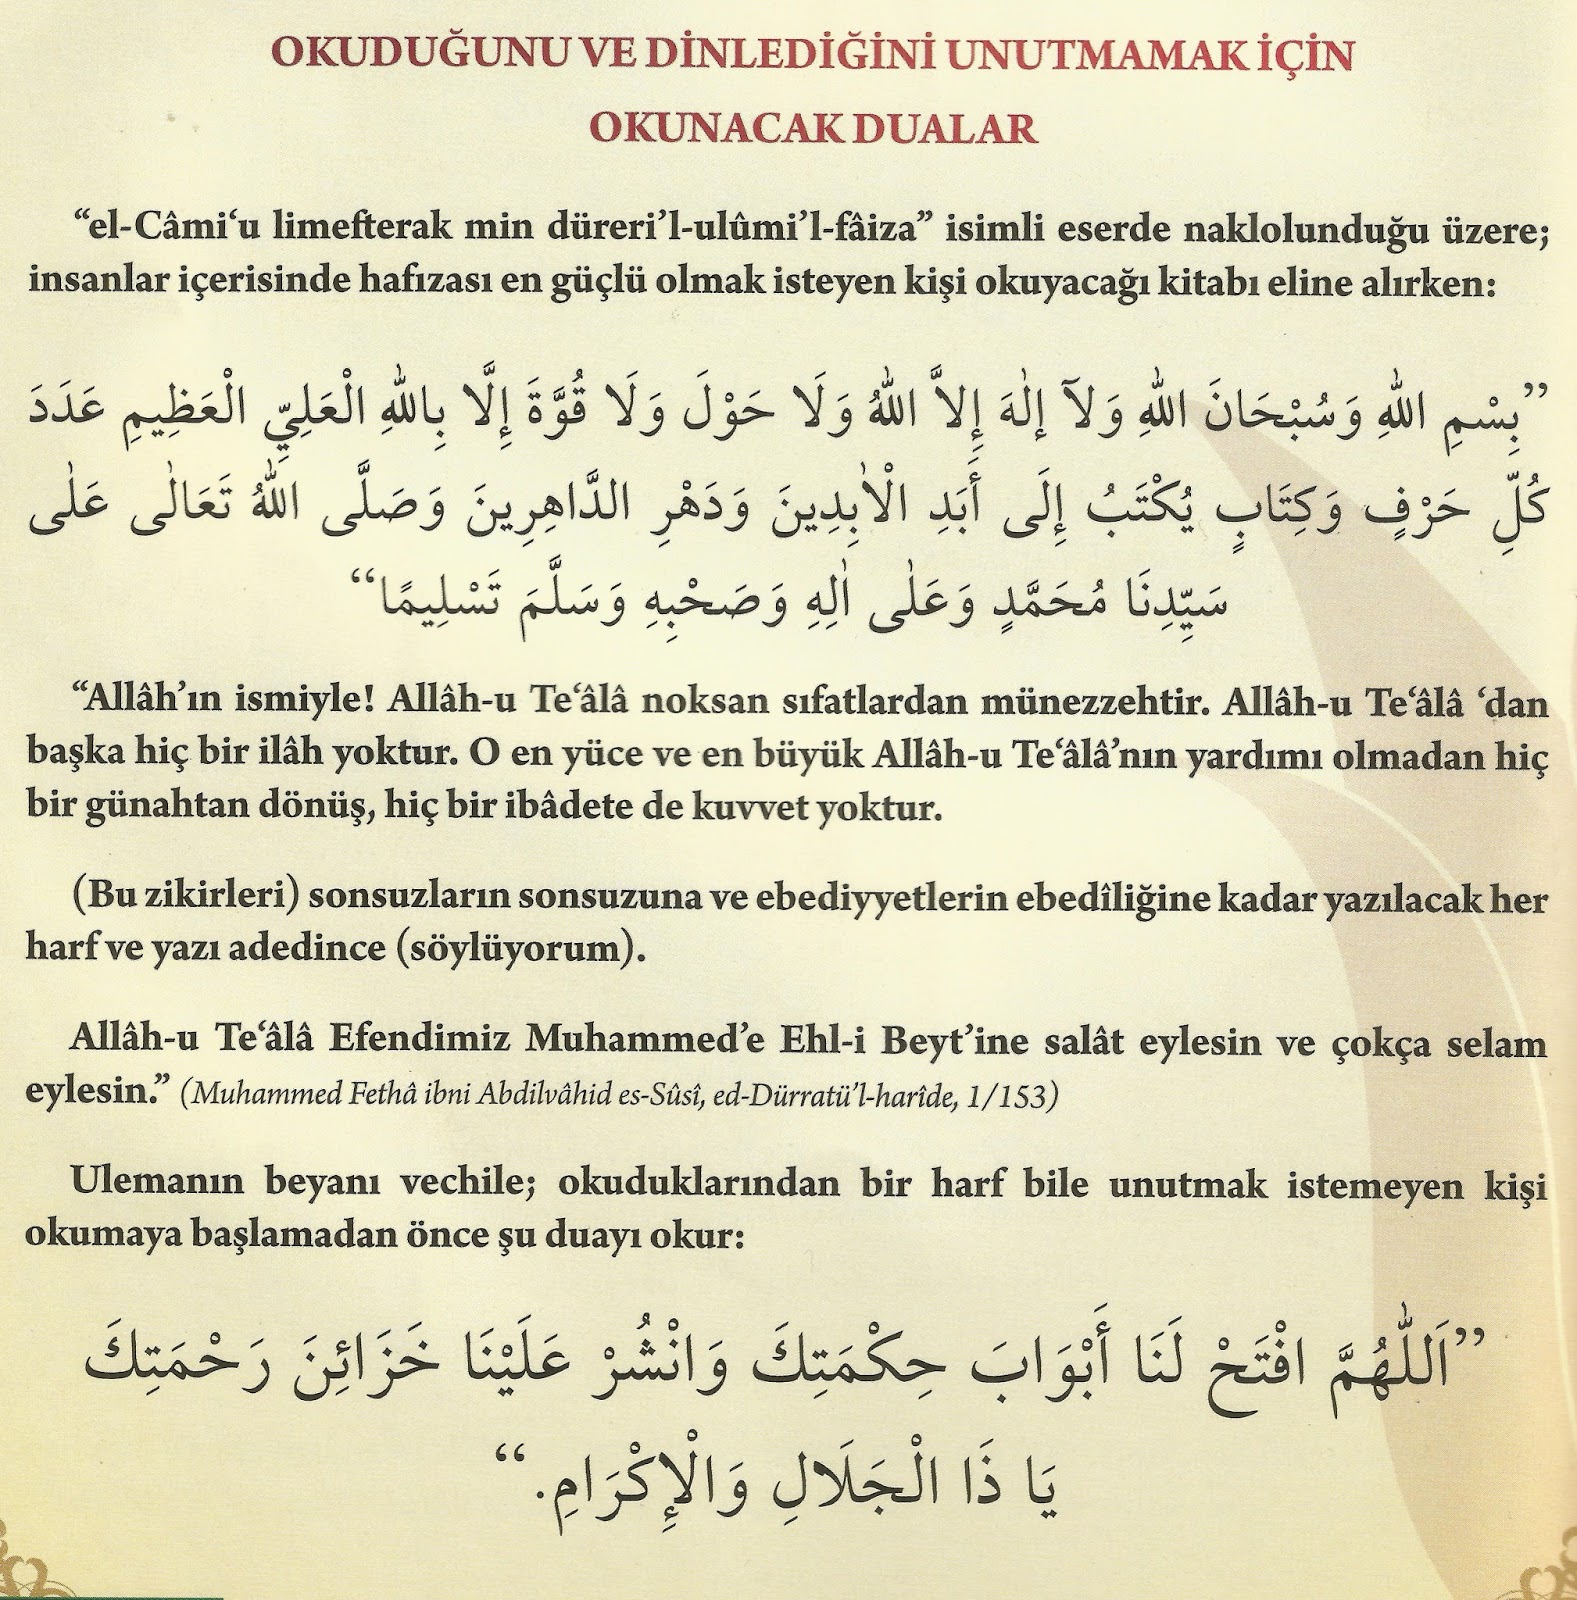 OKUDUĞUNU VE DİNLEDİĞİNİ UNUTMAMAK İÇİN
OKUNACAK DUALAR
“el-Câmi‘u limefterak min düreri’l-ulûmi’l-fâiza” isimli eserde naklolunduğu üzere;
insanlar içerisinde hafızası en güçlü olmak isteyen kişi okuyacağı kitabı eline alırken:
”بِسْمِ اللّٰهِ وَسُبْحَانَ اللّٰهِ وَلَآ إلٰهَ إِلاَّ اللّٰهُ وَلَا حَوْلَ وَلَا قُوَّةَ إِلَّا بِاللّٰهِ الْعَلِيِّ الْعَظِيمِ عَدَدَ
كُلِّ حَرْفٍ وَكِتَابٍ يُكْتَبُ إِلَى أَبَدِ الْاٰبِدِينَ وَدَهْرِ الدَّاهِرِينَ وَصَلَّى اللّٰهُ تَعَالٰى عَلٰى
سَيِّدِنَا مُحَمَّدٍ وَعَلٰى اٰلِهِ وَصَحْبِهِ وَسَلَّمَ تَسْلِيمًا“
“Allâh’ın ismiyle! Allâh-u Te‘âlâ noksan sıfatlardan münezzehtir. Allâh-u Te‘âlâ ‘dan
başka hiç bir ilâh yoktur. O en yüce ve en büyük Allâh-u Te‘âlâ’nın yardımı olmadan hiç
bir günahtan dönüş, hiç bir ibâdete de kuvvet yoktur.
(Bu zikirleri) sonsuzların sonsuzuna ve ebediyyetlerin ebedîliğine kadar yazılacak her
harf ve yazı adedince (söylüyorum).
Allâh-u Te‘âlâ Efendimiz Muhammed’e Ehl-i Beyt’ine salât eylesin ve çokça selam
eylesin.” (Muhammed Fethâ ibni Abdilvâhid es-Sûsî, ed-Dürratü’l-harîde, 1/153)
Ulemanın beyanı vechile; okuduklarından bir harf bile unutmak istemeyen kişi
okumaya başlamadan önce şu duayı okur:
”اَللّٰهُمَّ افْتَحْ لَنَا أَبْوَابَ حِكْمَتِكَ وَانْشُرْ عَلَيْنَا خَزَائِنَ رَحْمَتِكَ
يَا ذَا الْجَلَالِ وَالْإِكْرَامِ.“